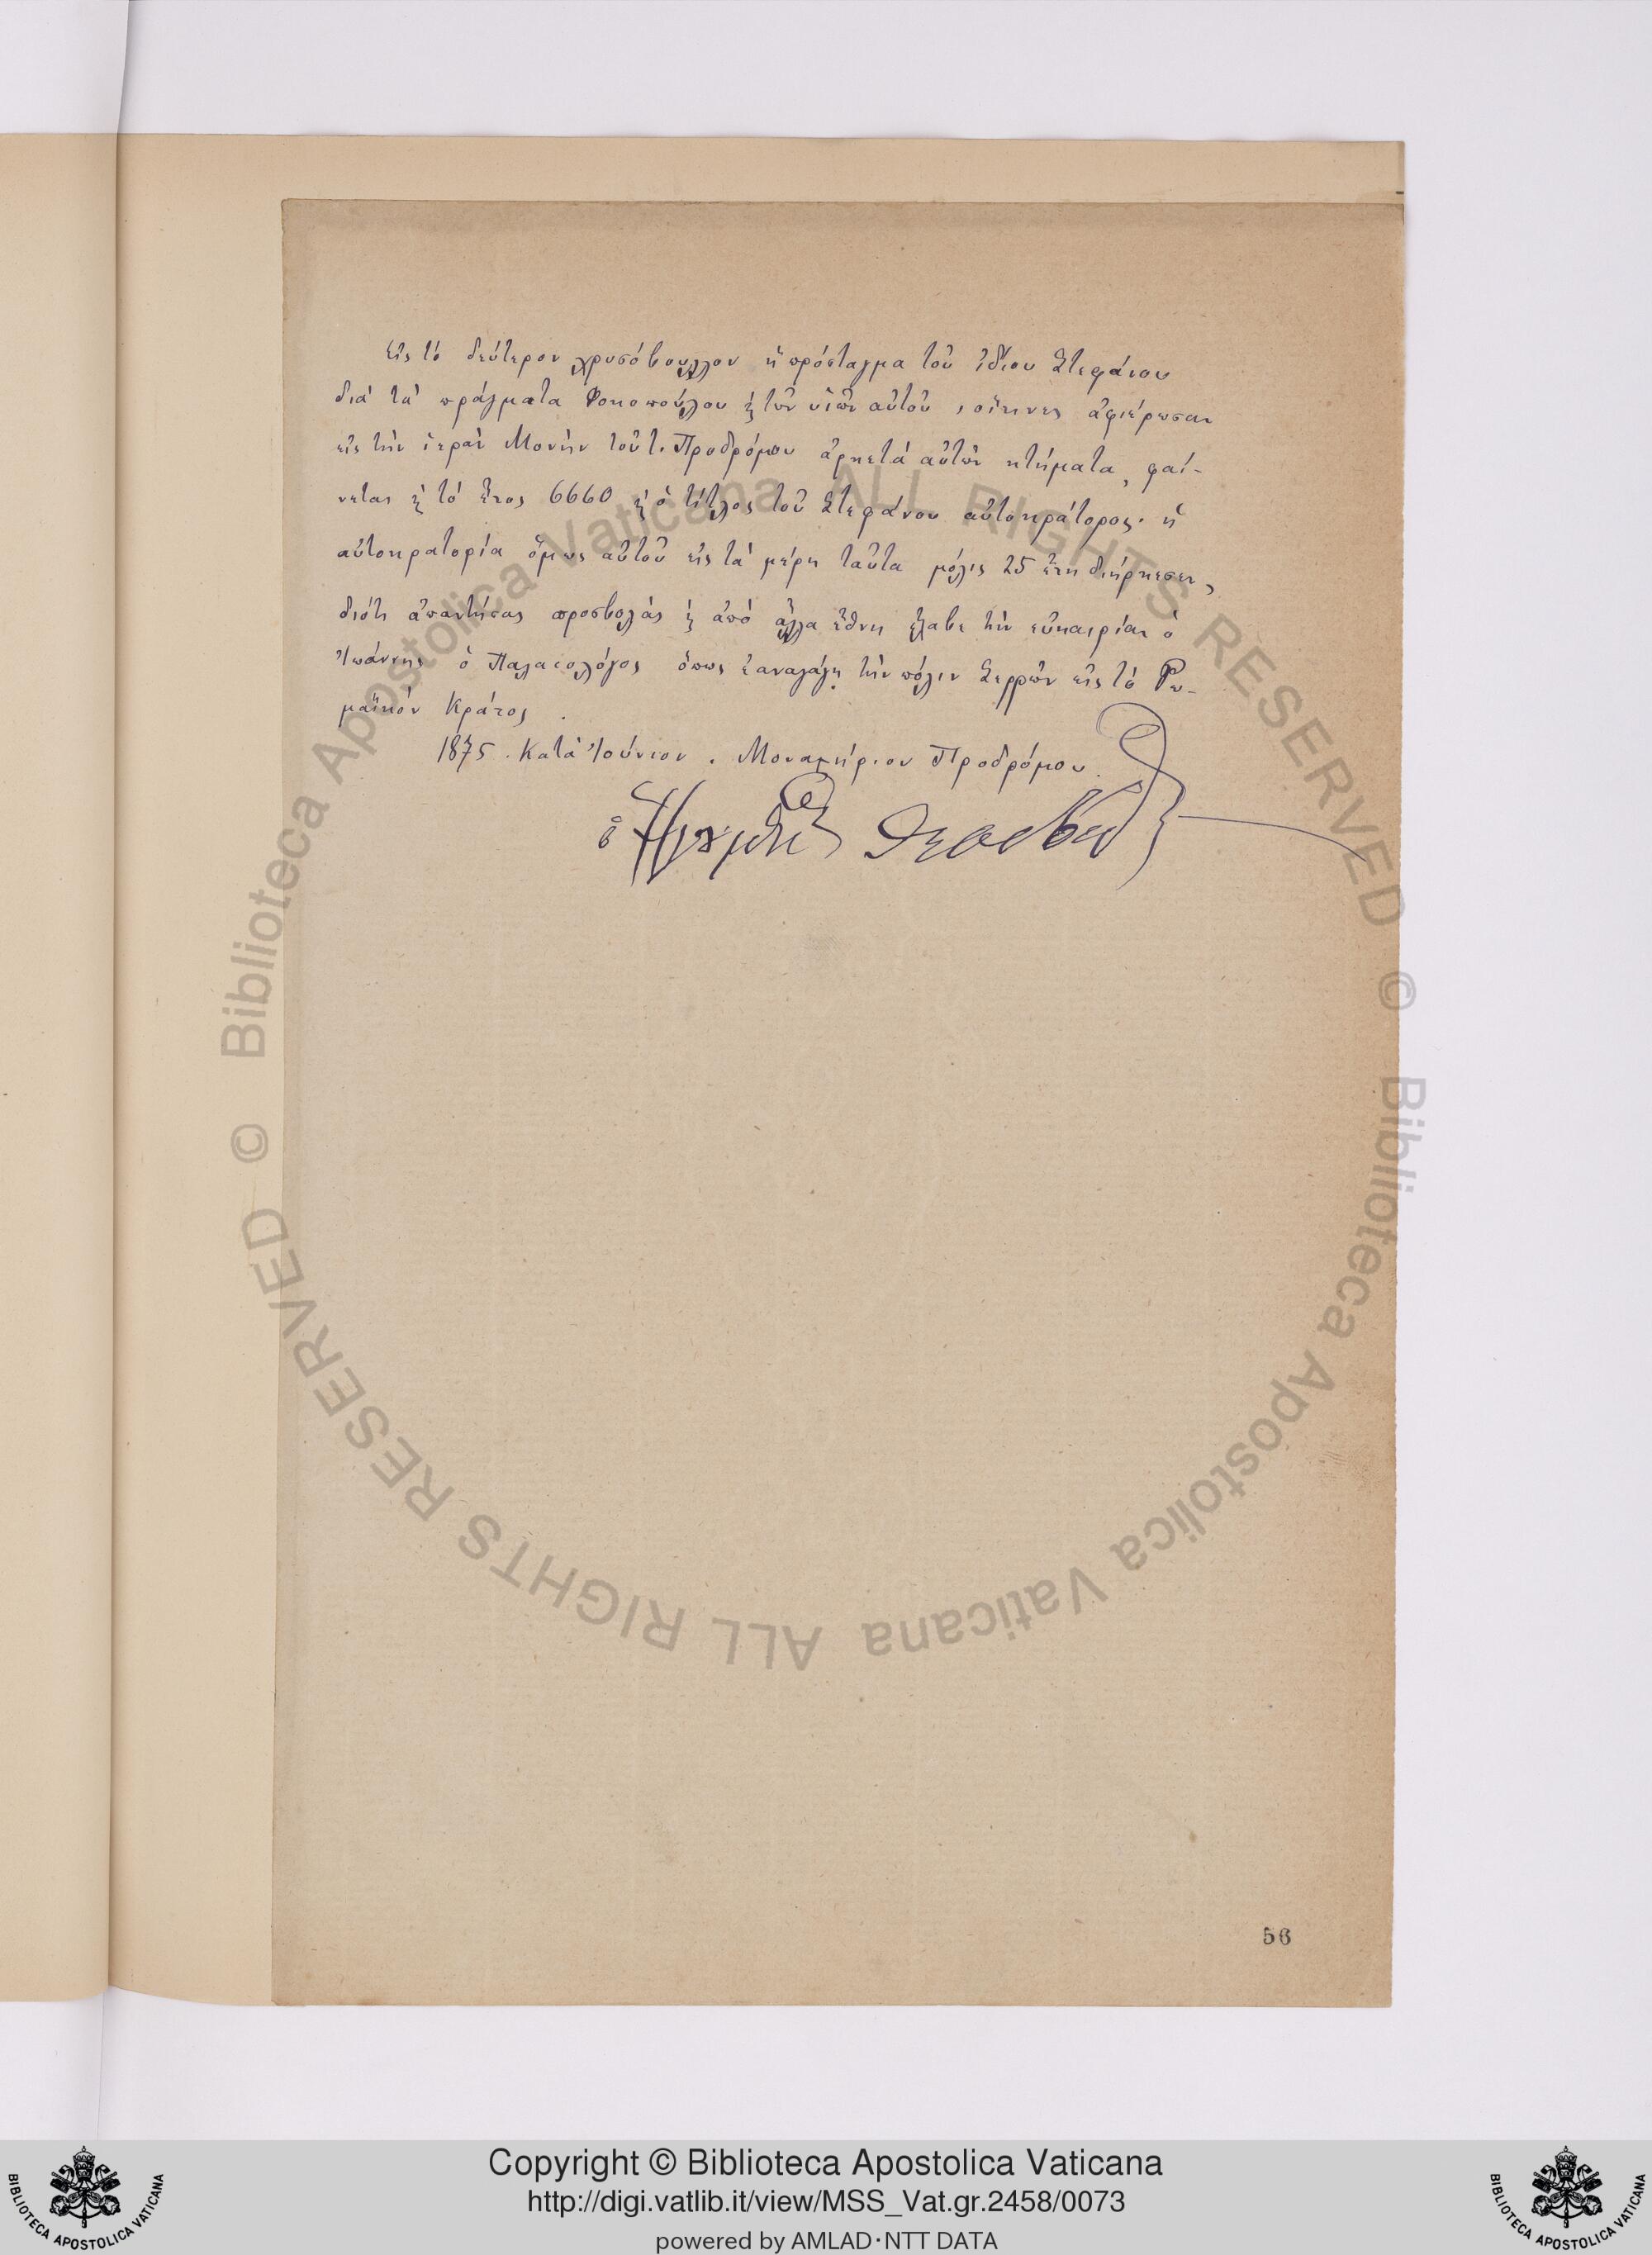 Εἰς τὸ δεύτερον χρυσόβουλλον ἢ πρόσταγμα τοῦ ἰδίου Στεφάνου
διὰ τὰ πράγματα Φοκοπούλου ϗ τῶν υἱῶν αὐτοῦ, οἵτινες ἀφιέρωσαν
εἰς τὴν ἱερὰν Μονὴν τοῦ τ. Προδρόμου ἀρκετὰ αὐτῶν κτήματα, φαί-
νεται ϗ τὸ ἔτος 6660 ϗ ὁ τίτλος τοῦ Στεφάνου αὐτοκράτορος· ἡ
αὐτοκρατορία ὅμως αὐτοῦ εἰς τὰ μέρη ταῦτα μόλις 25 ἔτη διήρκεσεν,
διότι ἀπαντήσας προσβολὰς ϗ ἀπὸ ἄλλα ἔθνη ἔλαβε τὴν εὐκαιρίαν ὁ
Ἰωάννης ὁ Παλαιολόγος ὅπως ἐπαναλάβῃ τὴν πόλιν Σερρῶν εἰς τὸ Ρω-
μαϊκὸν Κράτος.
1875. Κατὰ Ἰούνιον. Μοναστήριον Προδρόμου.
ὁ
56
Copyright © Biblioteca Apostolica Vaticana
http://digi.vatlib.it/view/MSS_Vat.gr.2458/0073
powered by AMLAD·NTT DATA
BIBLIOTECA APOSTOLICA VATICANA
BIBLIOTECA APOSTOLICA VATICANA
© Biblioteca Apostolica Vaticana ALL RIGHTS RESERVED
© Biblioteca Apostolica Vaticana ALL RIGHTS RESERVED